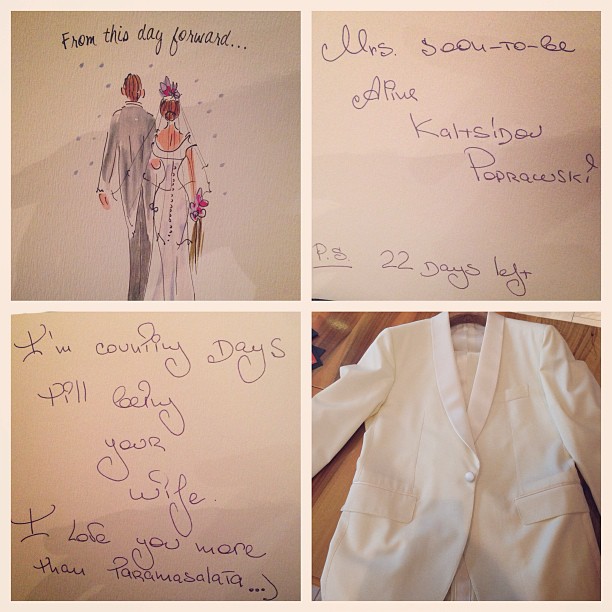 From this day forward...
Mrs. soon-to-be
Aline
Kaltsidou
Poprawski
P.S. 22 Days left
I'm counting Days
till being
your
wife.
I love you more
than Taramasalata...)